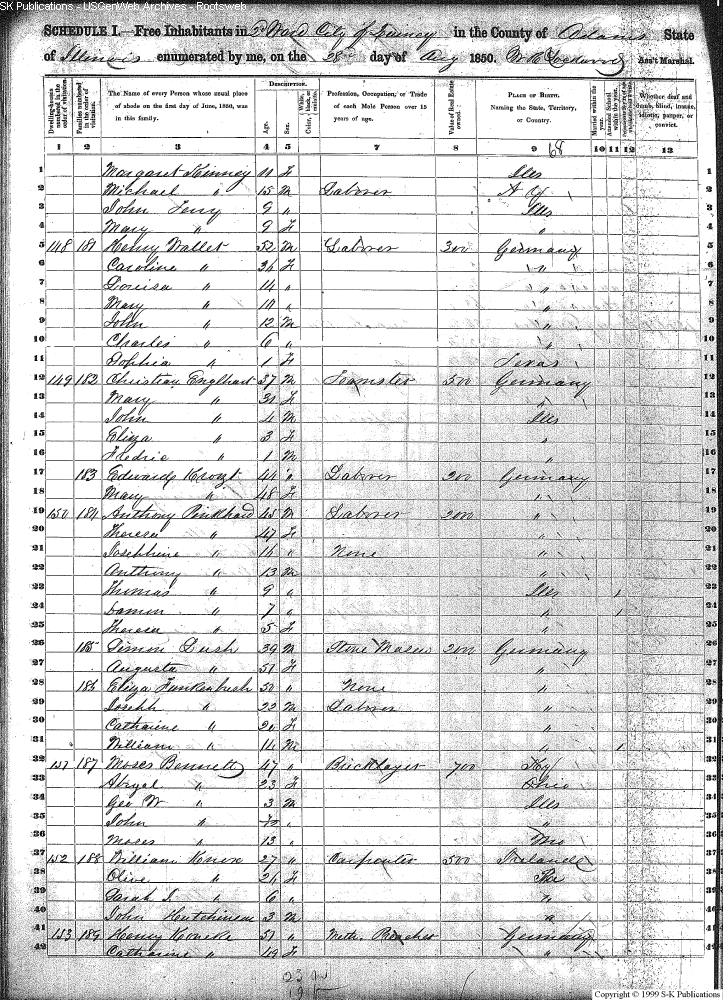 SK Publications - USGenWeb Archives - Rootsweb
SCHEDULE I.—Free Inhabitants in 2d Ward City of Quincy in the County of Adams State
of Illinois enumerated by me, on the 28th day of Aug 1850. Ass't Marshal.
Dwelling-houses numbered in the order of visitation. Families numbered in the order of visitation. The Name of every Person whose usual place of abode on the first day of June, 1850, was in this family. DESCRIPTION. Age. Sex. Color, White, black, or mulatto. Profession, Occupation, or Trade of each Male Person over 15 years of age. Value of Real Estate owned. PLACE OF BIRTH. Naming the State, Territory, or Country. Married within the year. Attended School within the year. Whether deaf and dumb, blind, insane, idiotic, pauper, or convict.
1 2 3 4 5 6 7 8 9 68 10 11 12 13
1 Margaret Kinney 11 F Ills 1
2 Michael " 15 M Laborer N Y 2
3 John 9 " Ills 3
4 Mary " 9 F " 4
5 148 181 Henry Wallet 52 M Laborer 300 Germany 5
6 Caroline " 36 F " 6
7 Louisa " 14 " " 7
8 Mary " " " 8
9 John " 12 M " 9
10 Charles " 6 " " 10
11 Sophia " 1 F Texas 11
12 149 182 Christian Englhart 37 M Teamster 500 Germany 12
13 Mary " 31 F " 13
14 John " 4 M Ills 14
15 Eliza " 3 F " 15
16 Fredric " 1 M " 16
17 183 Edward 44 " Laborer 200 Germany 17
18 Mary " 48 F " 18
19 150 184 Anthony Pinkhard 45 M Laborer 2000 " 19
20 Theresa " 47 F " 20
21 Josephine " 16 " None " 21
22 Anthony " 13 M " 22
23 Thomas " 9 " Ills 1 23
24 Damon " 7 " " 1 24
25 Theresa " 5 F " 25
26 185 Simon Lush 39 M Stone Mason 200 Germany 26
27 Augusta " 51 F " 27
28 186 Eliza Funkenbush 50 " None " 28
29 Joseph " 22 M Laborer " 29
30 Catharine " 20 F " 30
31 William " 14 M " 1 31
32 151 187 Moses Bennett 47 " Bricklayer 700 Ky 32
33 Abigal " 23 F Ohio 33
34 Geo W " 3 M Ills 34
35 John " " " 35
36 Moses " 13 " Mo 36
37 152 188 William Knox 27 " Carpenter 500 Ireland 37
38 Olive " 26 F Pa 38
39 Sarah J. " 6 " " 39
40 John Hutchinson 3 M " 40
41 153 189 Henry Koneke 51 " Meth. Preacher Germany 41
42 Catharine " 49 F " 42
Copyright © 1999 S-K Publications